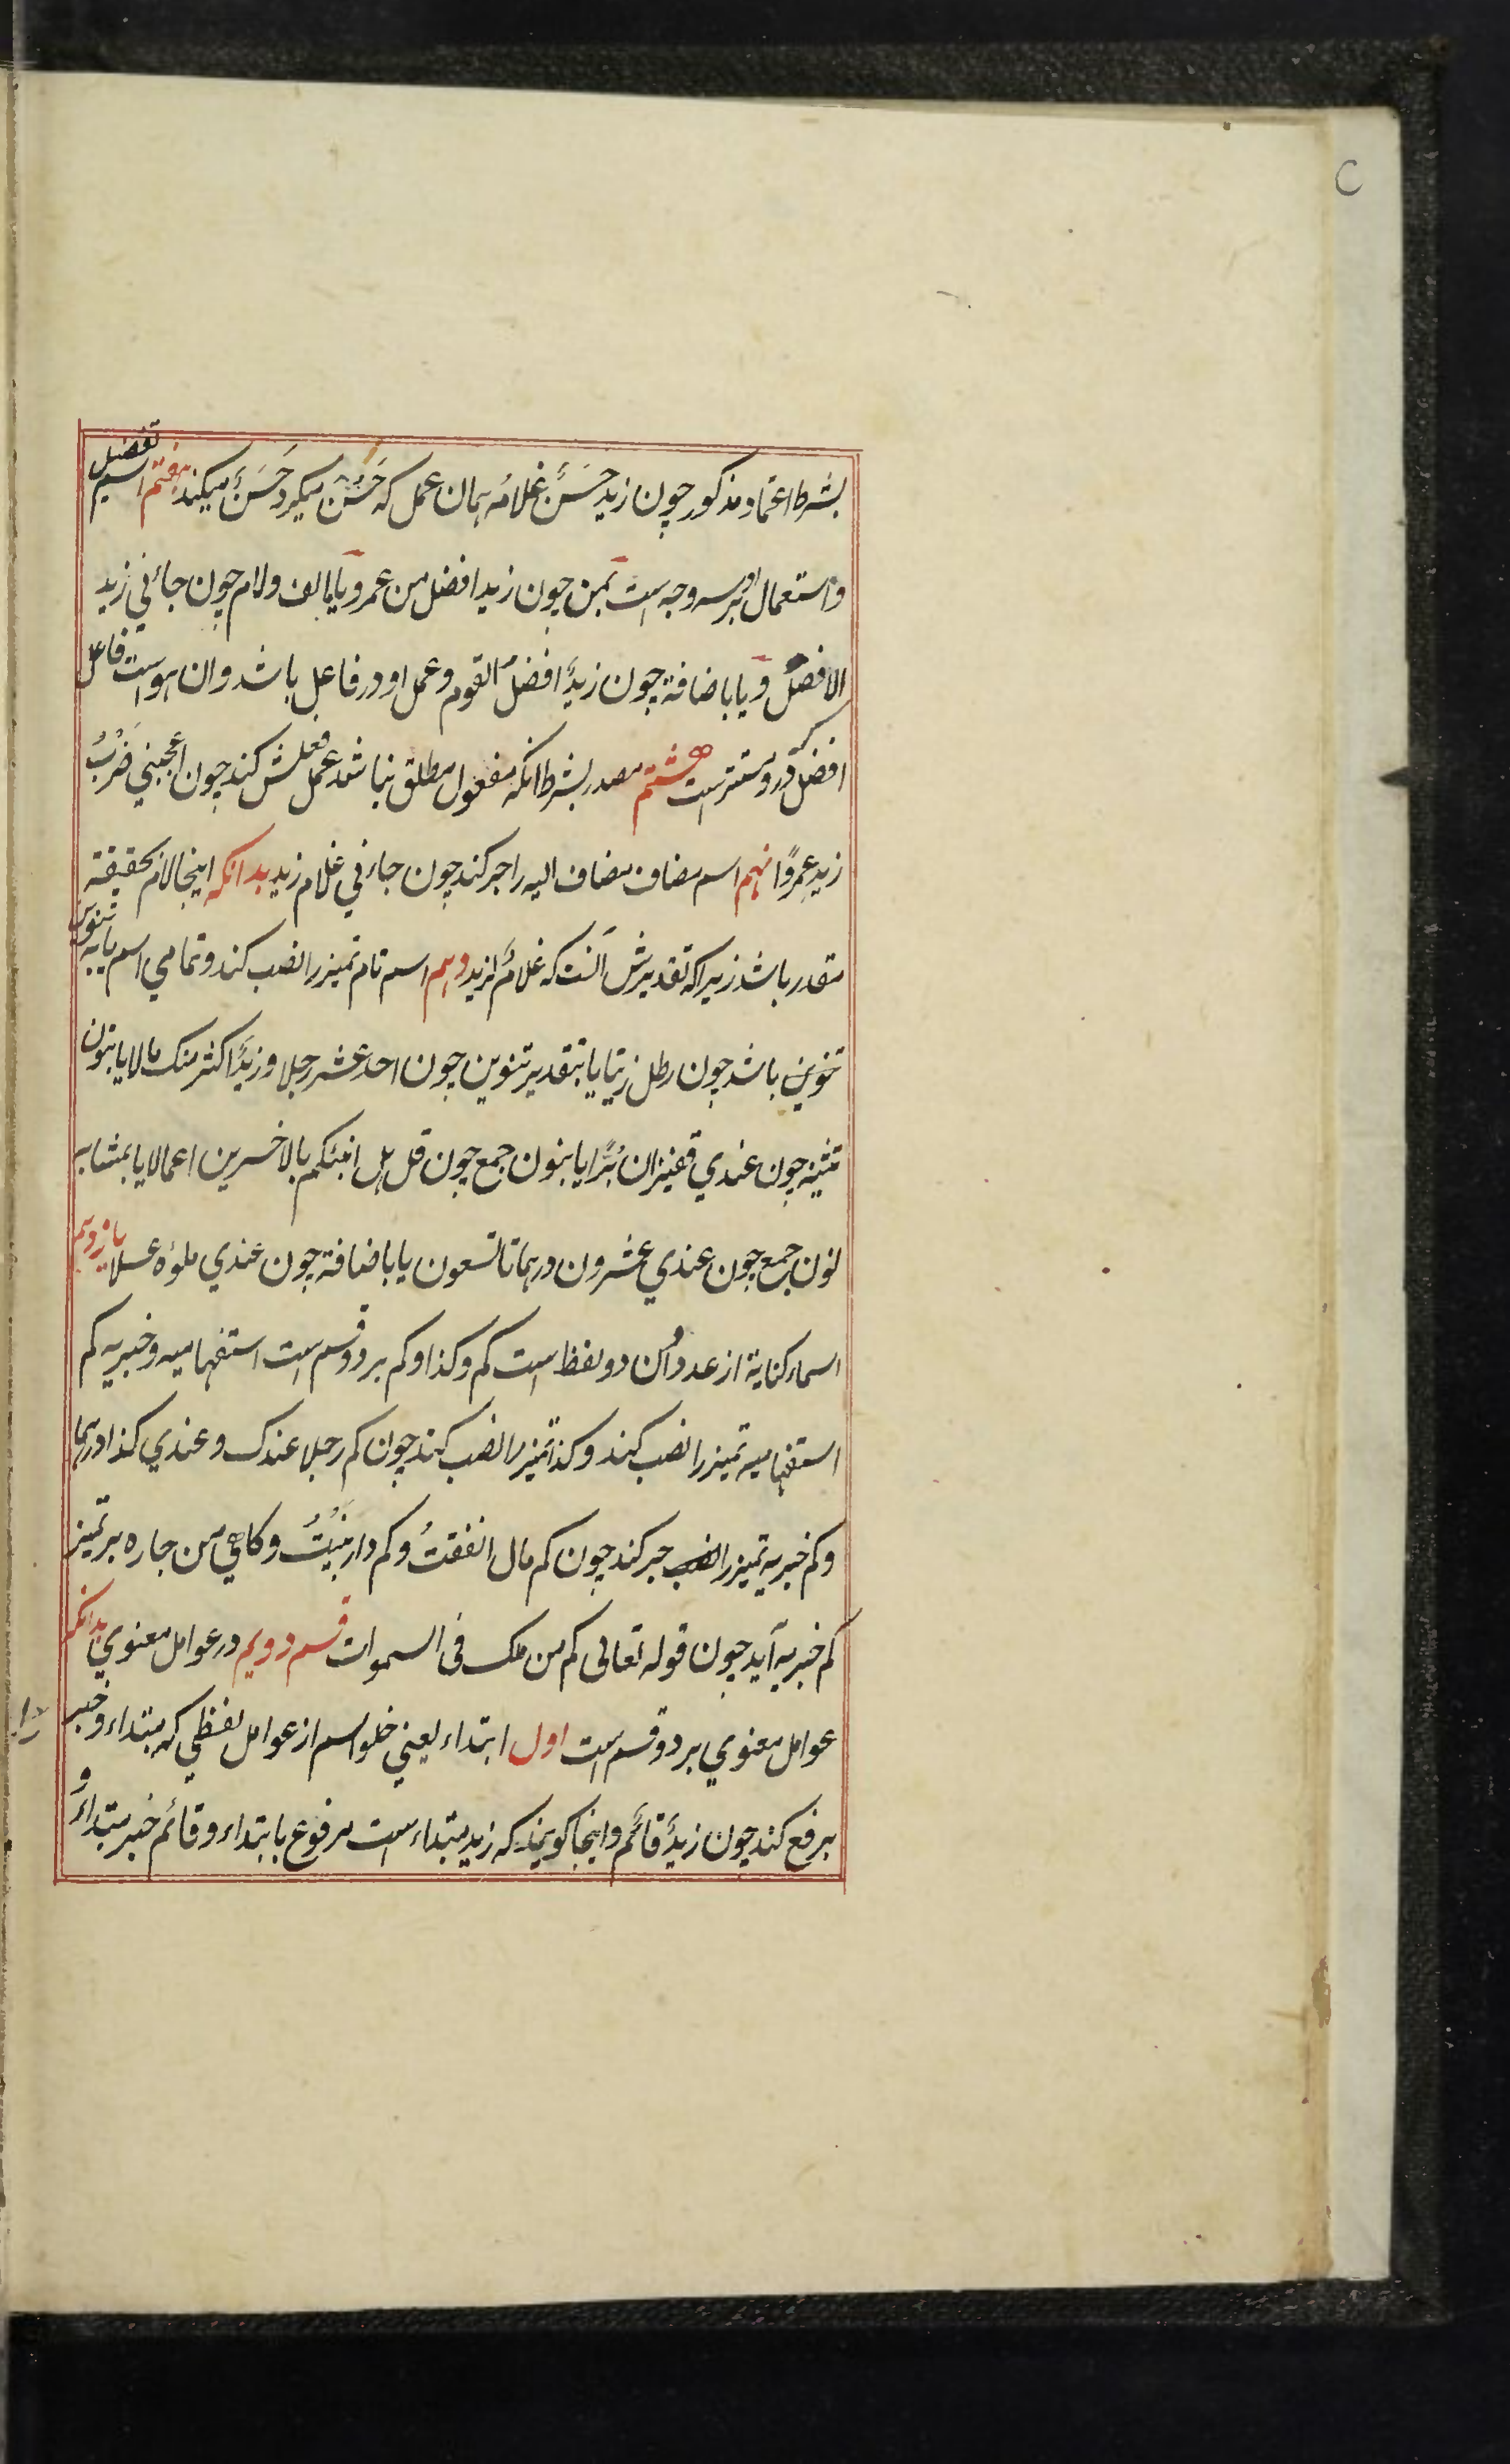 بشرط اعتماد مذکور چون زید حَسَنٌ غلامُه همان عمل که حَسُنَ میکرد حَسَنٌ میکند هفتم اسم تفضیل
واستعمال او بر سه وجه است بمِن چون زید افضل من عمرو یا بالف ولام چون جائني زید
الافضلُ ویا باضافة چون زیدٌ افضلُ القوم وعمل او در فاعل باشد وان هو است فاعل
افضل که درو مستتر است هشتم مصدر بشرط انکه مفعول مطلق نباشد عمل فعلش کند چون اعجبني ضَرْبُ
زیدٍ عمرًوا نهم اسم مضاف مضاف الیه را جر کند چون جاءني غلام زید بدانکه اینجا لام بحقیقة
مقدر باشد زیراکه تقدیرش آنست که غلامٌ لزید دهم اسم تام تمیز را نصب کند وتمامي اسم یا به تنوین
تنوین باشد چون رطل زیتا یا بتقدیر تنوین چون احد عشر رجلا وزیدٌ اکثر منک مالا یا بنون
تثنیه چون عندي قفیزان بُرًّا یا بنون جمع چون قل هل انبئکم بالاخسرین اعمالا یا بمشابه
نون جمع چون عندي عشرون درهما تا تسعون یا باضافة چون عندي ملؤه عسلا یازدهم
اسماء کنایة از عدد وآن دو لفظ است کم وکذا وکم بر دو قسم است استفهامیه وخبریه کم
استفهامیه تمیز را نصب کند وکذا تمیز را نصب کند چون کم رجلا عندک وعندي کذا درهما
وکم خبریه تمیز را نصب جر کند چون کم مال انفقتُ وکم دار بَنَیْتُ وکاهي من جاره بر تمیز
کم خبریه آید چون قوله تعالی کم من ملک فی السموات قسم دویم در عوامل معنوي بدانکه
عوامل معنوي بر دو قسم است اول ابتداء یعني خلو اسم از عوامل لفظي که مبتداء وخبر را
برفع کند چون زیدٌ قائم واینجا کویند که زید مبتداء است مرفوع بابتداء وقائم خبر مبتداء و